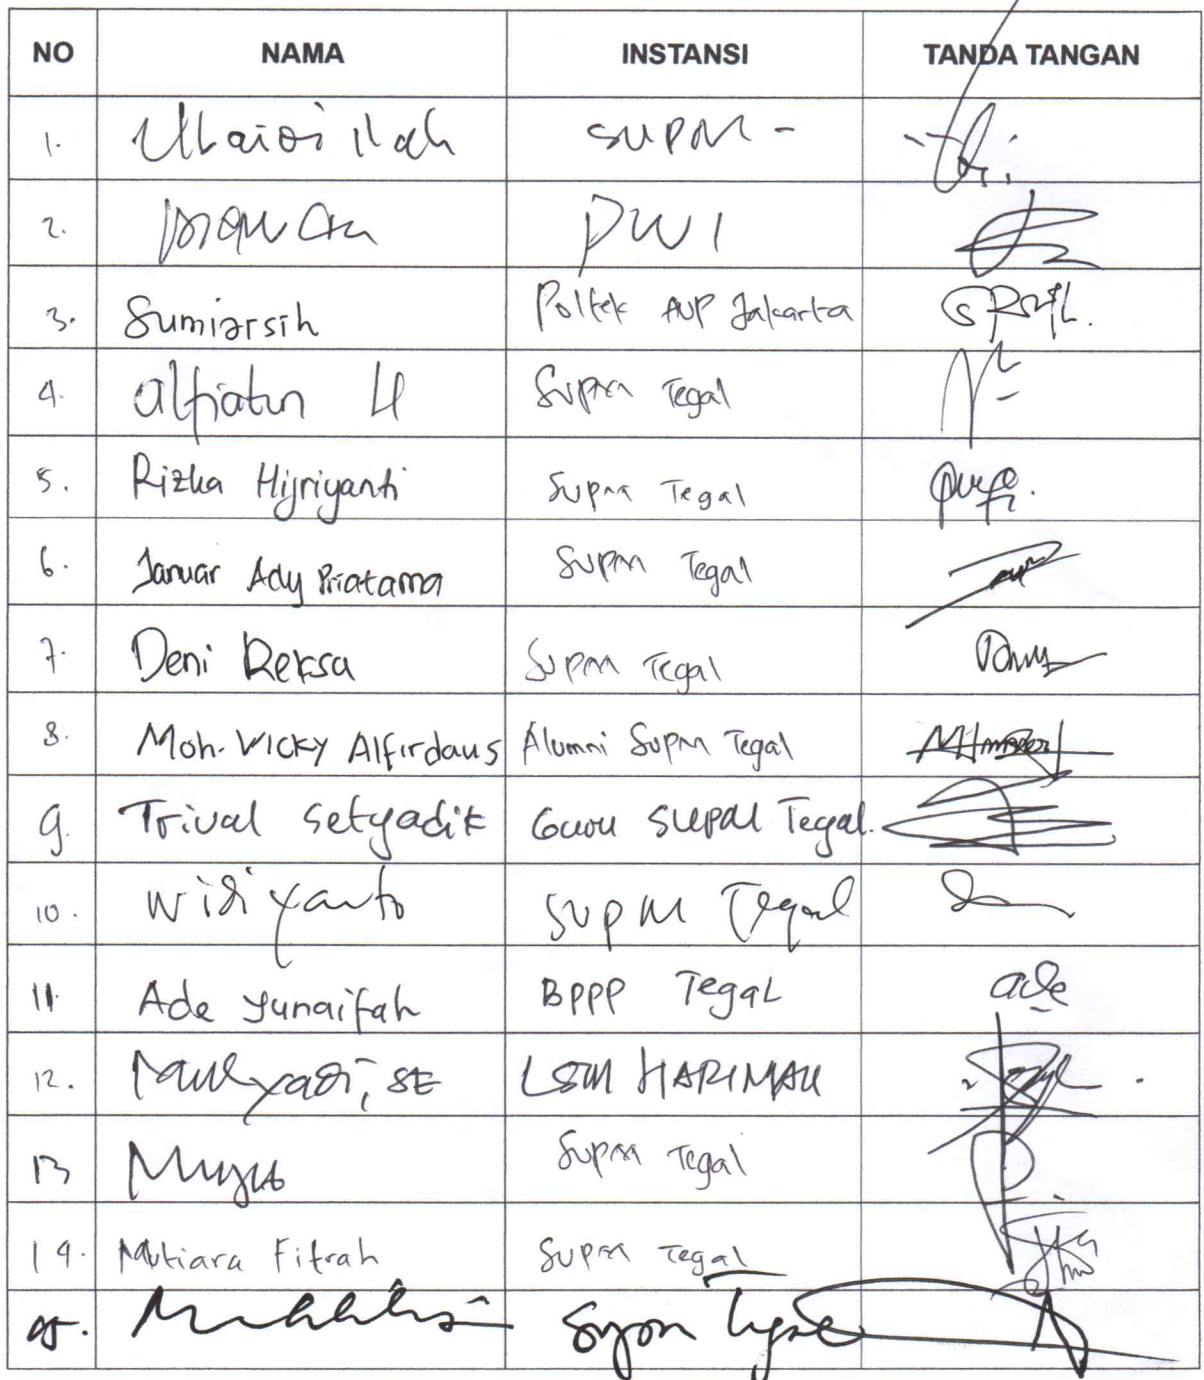 NO NAMA INSTANSI TANDA TANGAN
1. Ubaidillah SUPM -
2. PWI
3. Sumiarsih Poltek AUP Jakarta
4. Alfiatun H Supm Tegal
5. Rizka Hijriyanti Supm Tegal
6. Januar Ady Pratama Supm Tegal
7. Deni Reksa Supm Tegal
8. Moh. VICKY Alfirdaus Alumni Supm Tegal
9. Trival Setyadik Guru SUPM Tegal.
10. Widiyanto SUPM Tegal
11. Ade Yunaifah BPPP Tegal ade
12. Mulyadi, SE LSM HARIMAU
13 Supm Tegal
14. Mutiara Fitrah Supm Tegal
15. Supm Tegal